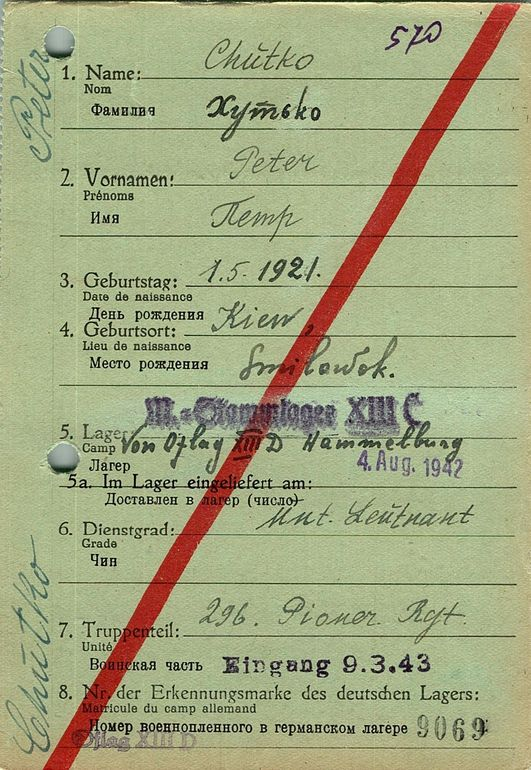 570
Peter
1. Name: Chutko
Nom
Фамилия Хутько
2. Vornamen: Peter
Prénoms
Имя Петр
3. Geburtstag: 1.5.1921.
Date de naissance
День рождения
4. Geburtsort: Kiew,
Lieu de naissance
Место рождения Smilowok.
M.-Stammlager XIII C
5. Lager
Camp Von Oflag XIII D Hammelburg
Лагерь 4. Aug. 1942
5a. Im Lager eingeliefert am:
Доставлен в лагерь (число)
6. Dienstgrad: Unt. Leutnant
Grade
Чин
7. Truppenteil: 296. Pioner Rgt.
Unité
Воинская часть Eingang 9.3.43
8. Nr. der Erkennungsmarke des deutschen Lagers:
Matricule du camp allemand
Номер военнопленного в германском лагере 9069
Oflag XIII D
Chutko